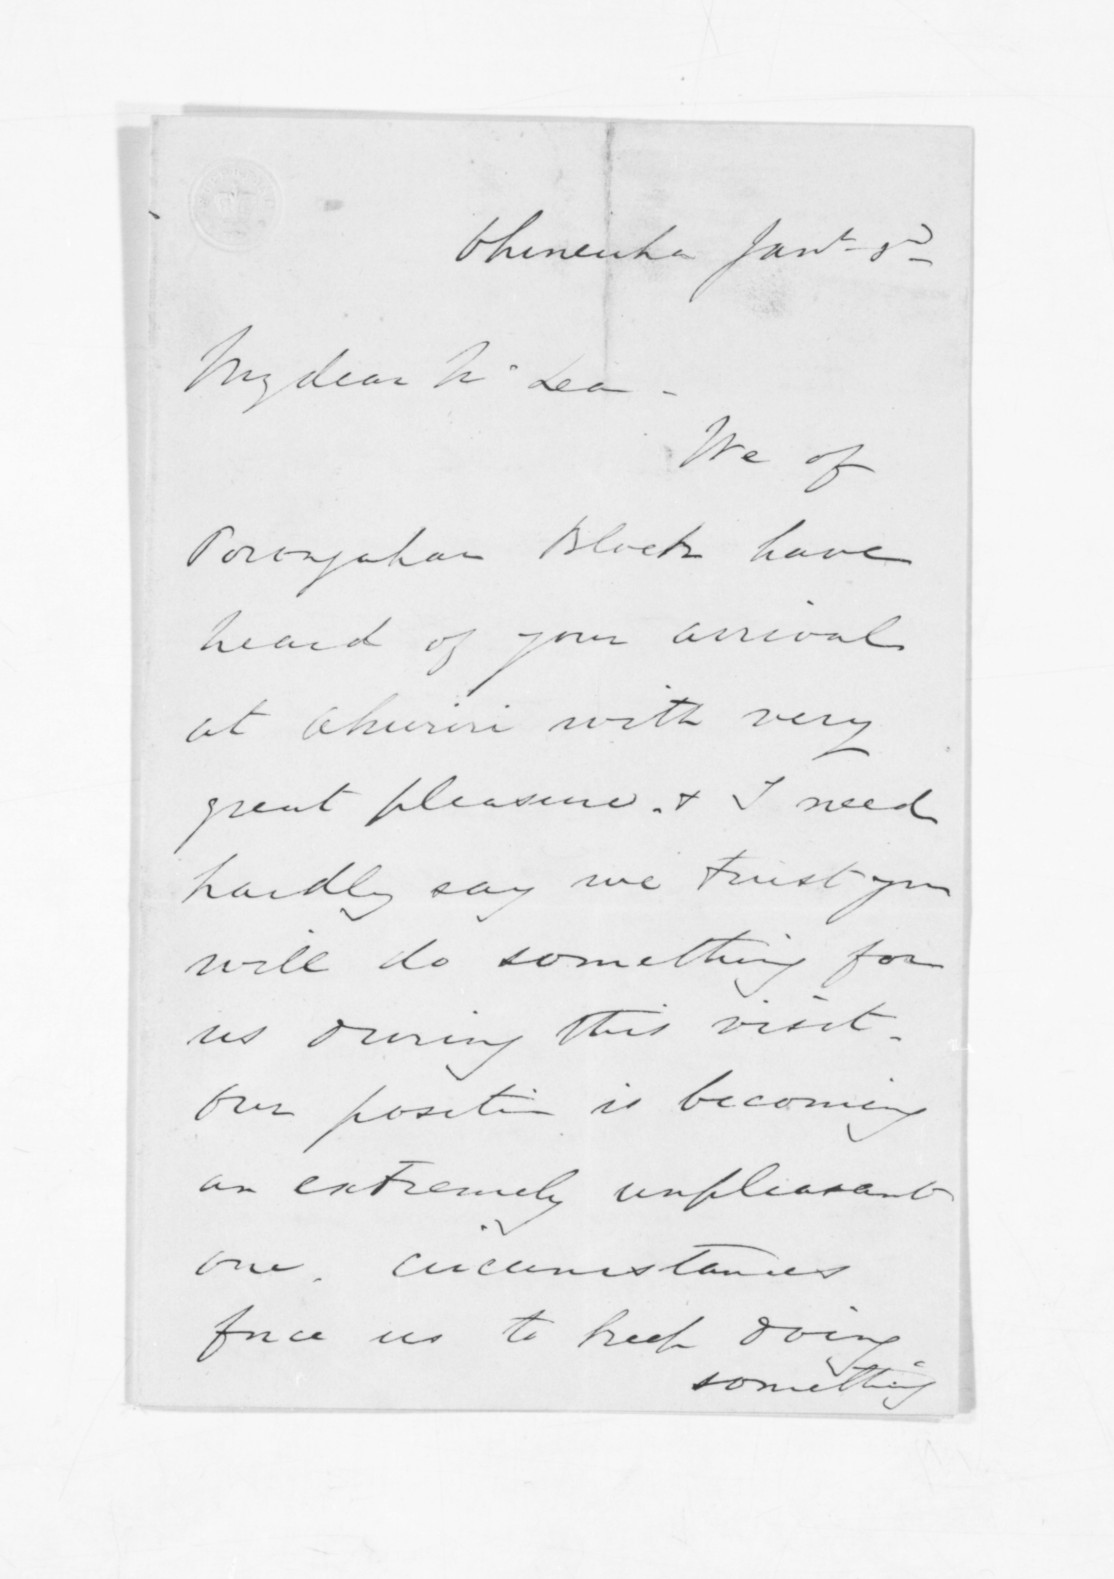 Ohineuha Jany 3rd
My dear Mc Lea -
We of
Porongahau Block have
heard of your arrival
at Ahuriri with very
great pleasure. & I need
hardly say we trust you
will do something for
us during this visit.
Our position is becoming
an extremely unpleasant
one. circumstances
force us to keep doing
something